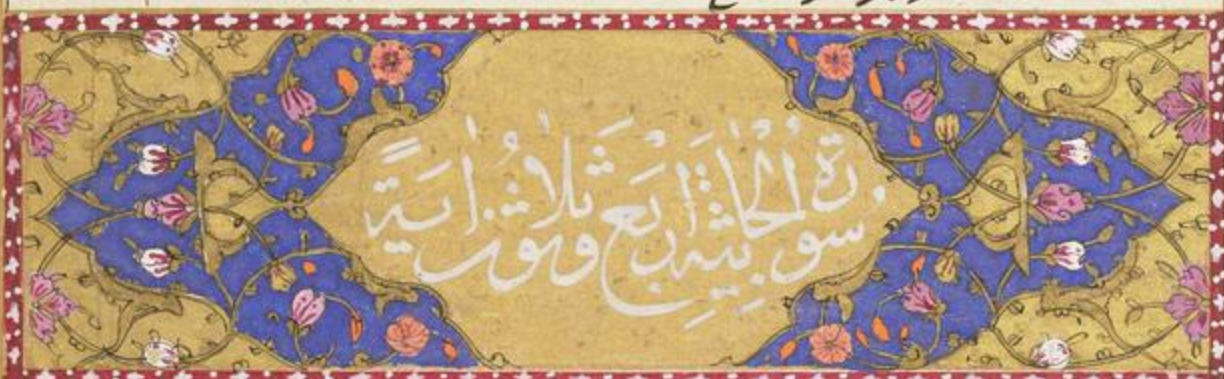 سُورَةُ الْجَاثِيَةِ اَرْبَعَ وَثَلَاثُونَ اٰيَةً